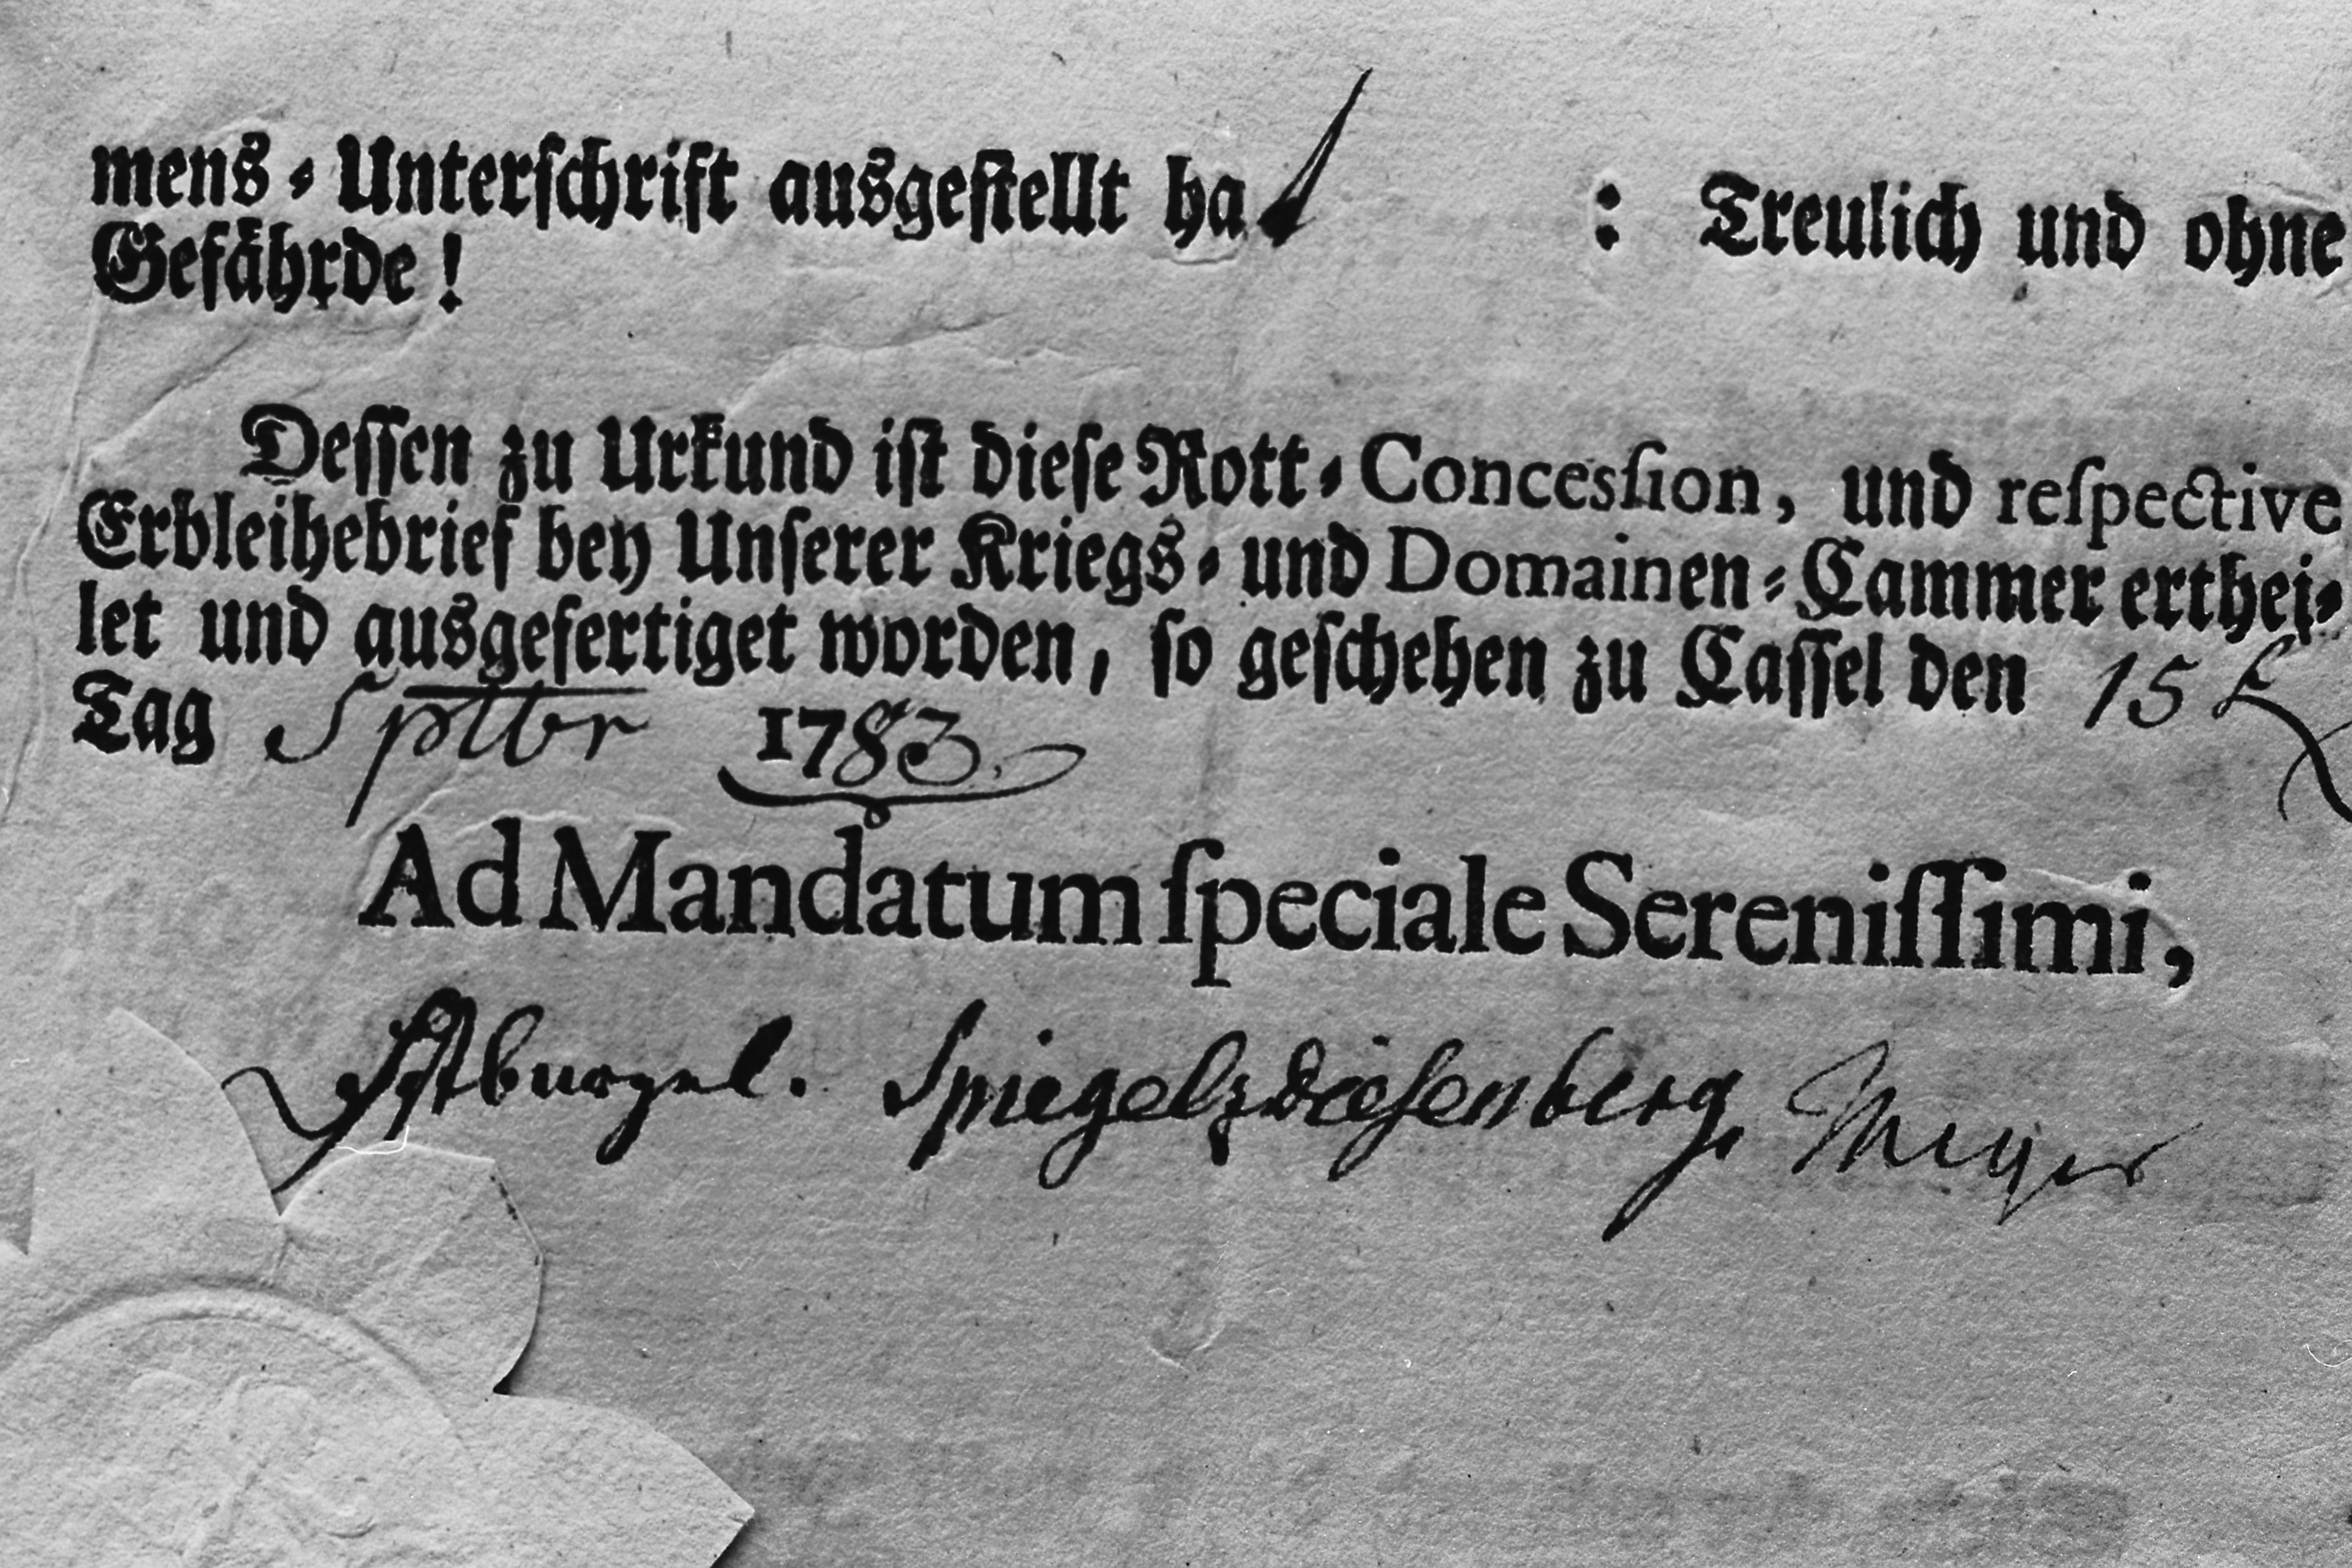 mens-Unterſchrift ausgeſtellt hat : Treulich und ohne
Gefährde!
Deſſen zu Urkund iſt dieſe Rott-Concesſion, und reſpective
Erbleihebrief bey Unſerer Kriegs- und Domainen-Cammer erthei-
let und ausgefertiget worden, ſo geſchehen zu Caſſel den 15
Tag Sptbr 1783.
Ad Mandatum ſpeciale Sereniſſimi,
Spiegelzdiesenberg, Meyer